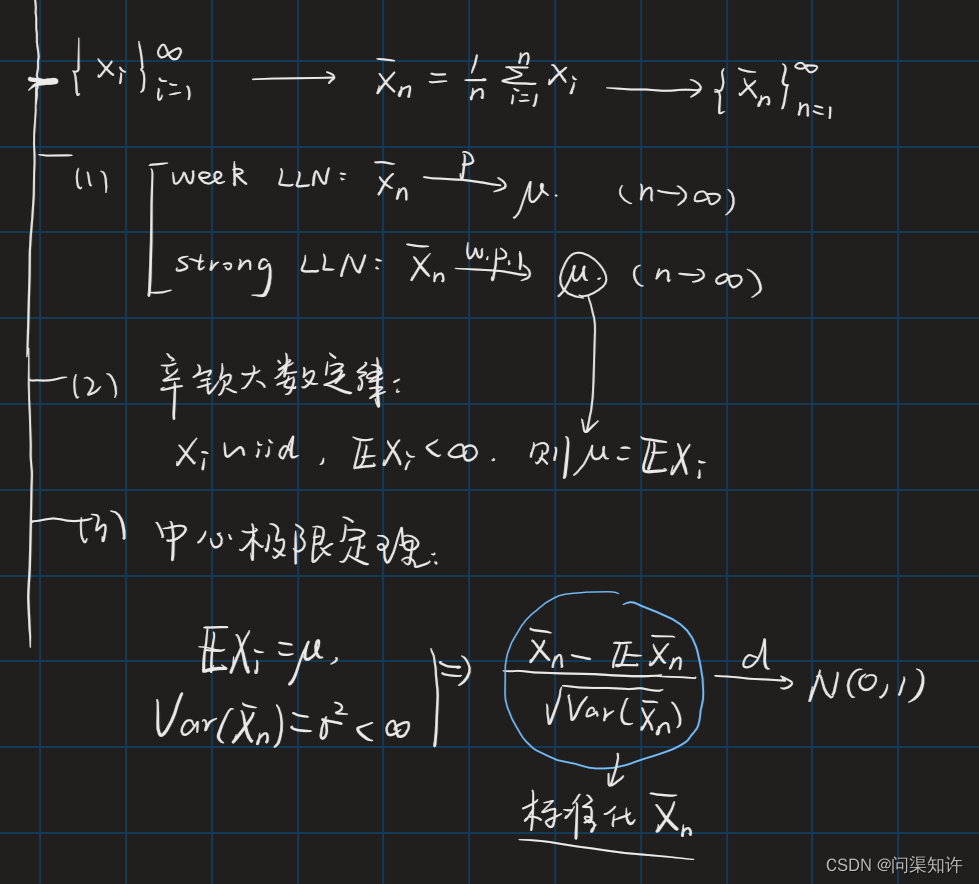 {xᵢ}_{i=1}^{∞} ⟶ x̄ₙ = 1/n ∑_{i=1}^{n} xᵢ ⟶ {x̄ₙ}_{n=1}^{∞}
(1) week LLN: x̄ₙ —P→ μ. (n→∞)
strong LLN: x̄ₙ —w.p.1→ μ. (n→∞)
(2) 辛钦大数定律:
Xᵢ iid, 𝔼Xᵢ<∞. 则μ=𝔼Xᵢ
(3) 中心极限定理:
𝔼Xᵢ=μ,
Var(x̄ₙ)=σ²<∞ ⇒ (x̄ₙ − 𝔼x̄ₙ) / √Var(x̄ₙ) —d→ N(0,1)
标准化 x̄ₙ
CSDN @问渠知许